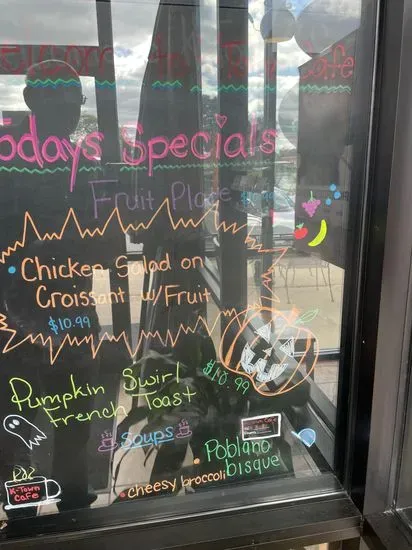 Todays Specials
Fruit Place
• Chicken Salad on
Croissant w/ Fruit
$10.99
Pumpkin Swirl
French Toast
$10.99
Soups
• Poblano
bisque
• cheesy broccoli
K-Town
Cafe